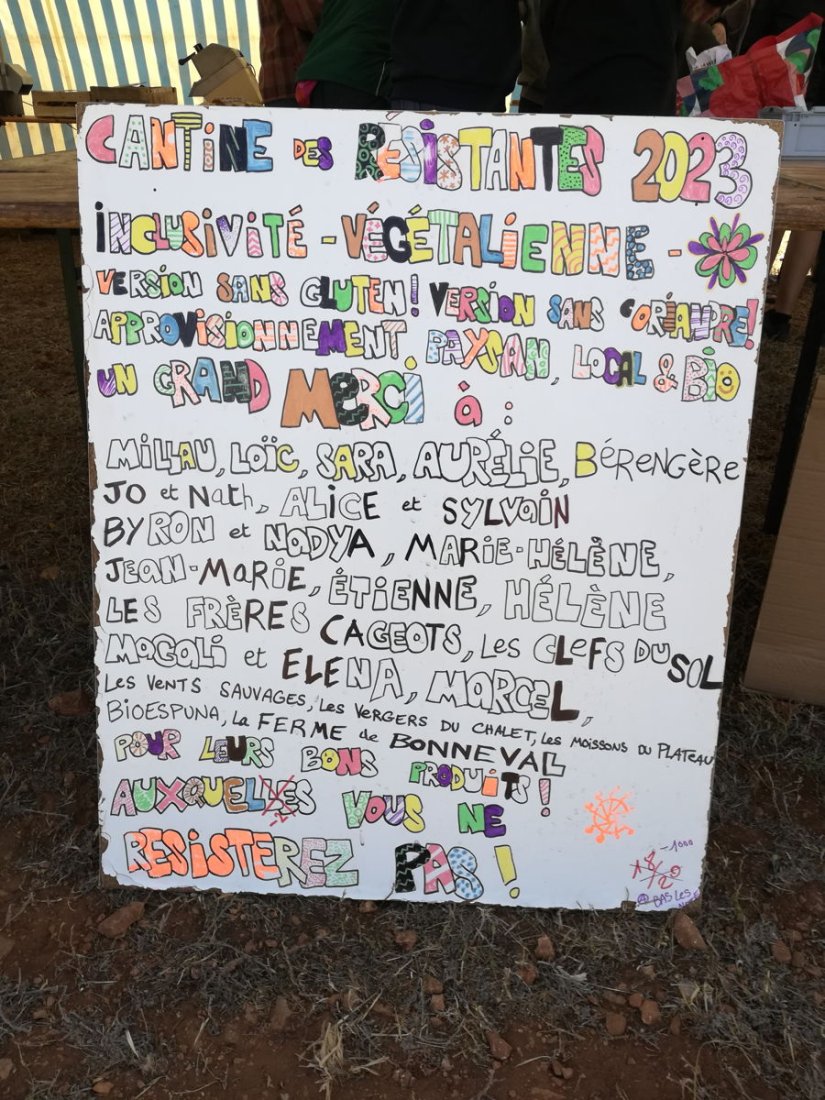 CANTINE DES RÉSISTANTES 2023
INCLUSIVITÉ - VÉGÉTALIENNE -
VERSION SANS GLUTEN! VERSION SANS CORIANDRE!
APPROVISIONNEMENT PAYSAN, LOCAL & BIO
UN GRAND MERCI à :
MILLAU, LOÏC, SARA, AURÉLIE, BÉRENGÈRE
JO et NATH, ALICE et SYLVAIN
BYRON et NADYA, MARIE-HÉLÈNE,
JEAN-MARIE, ÉTIENNE, HÉLÈNE
LES FRÈRES CAGEOTS, LES CLEFS DU SOL
MAGALI et ELENA, MARCEL,
LES VENTS SAUVAGES, LES VERGERS DU CHALET, LES MOISSONS DU PLATEAU
BIOESPUNA, LA FERME de BONNEVAL
POUR LEURS BONS PRODUITS!
AUXQUELLES VOUS NE
RESISTEREZ PAS!
-1000
18/20
BAS LES